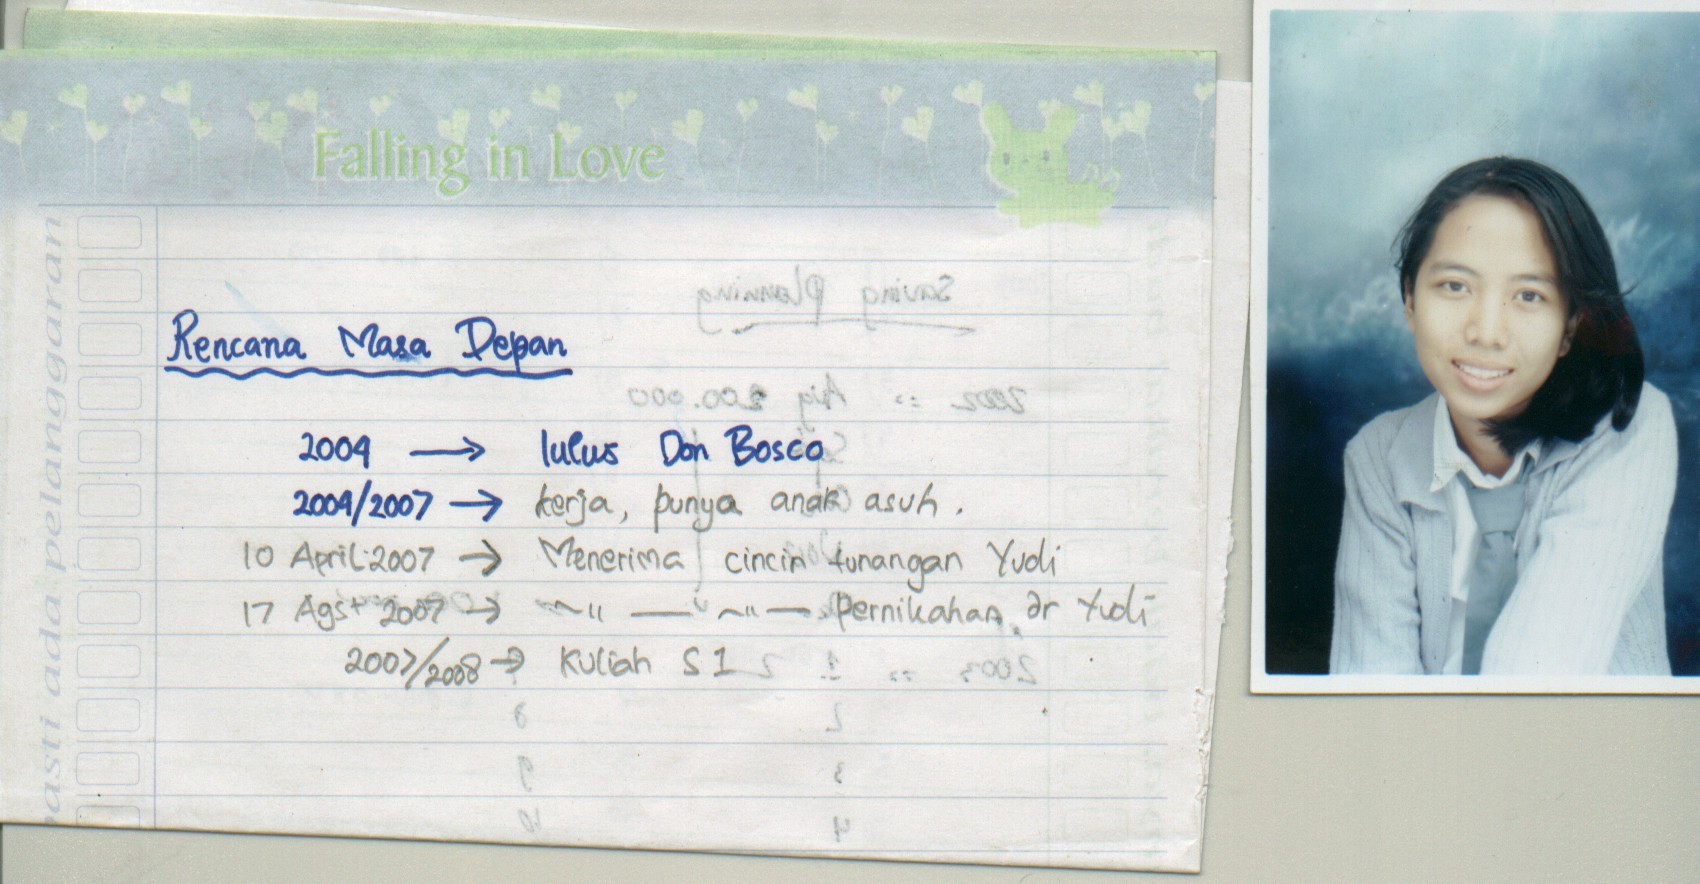 Falling in Love
pasti ada pelanggaran
Rencana Masa Depan
2004 → lulus Don Bosco
2004/2007 → kerja, punya anak asuh.
10 April 2007 → Menerima cincin tunangan Yudi
17 Agst 2007 → ~〃 — ~〃 — pernikahan dr Yudi
2007/2008 → Kuliah S1
Saving Planning
2002 :: Aig 200.000
2003 :: 1
2
8
3
9
4
10